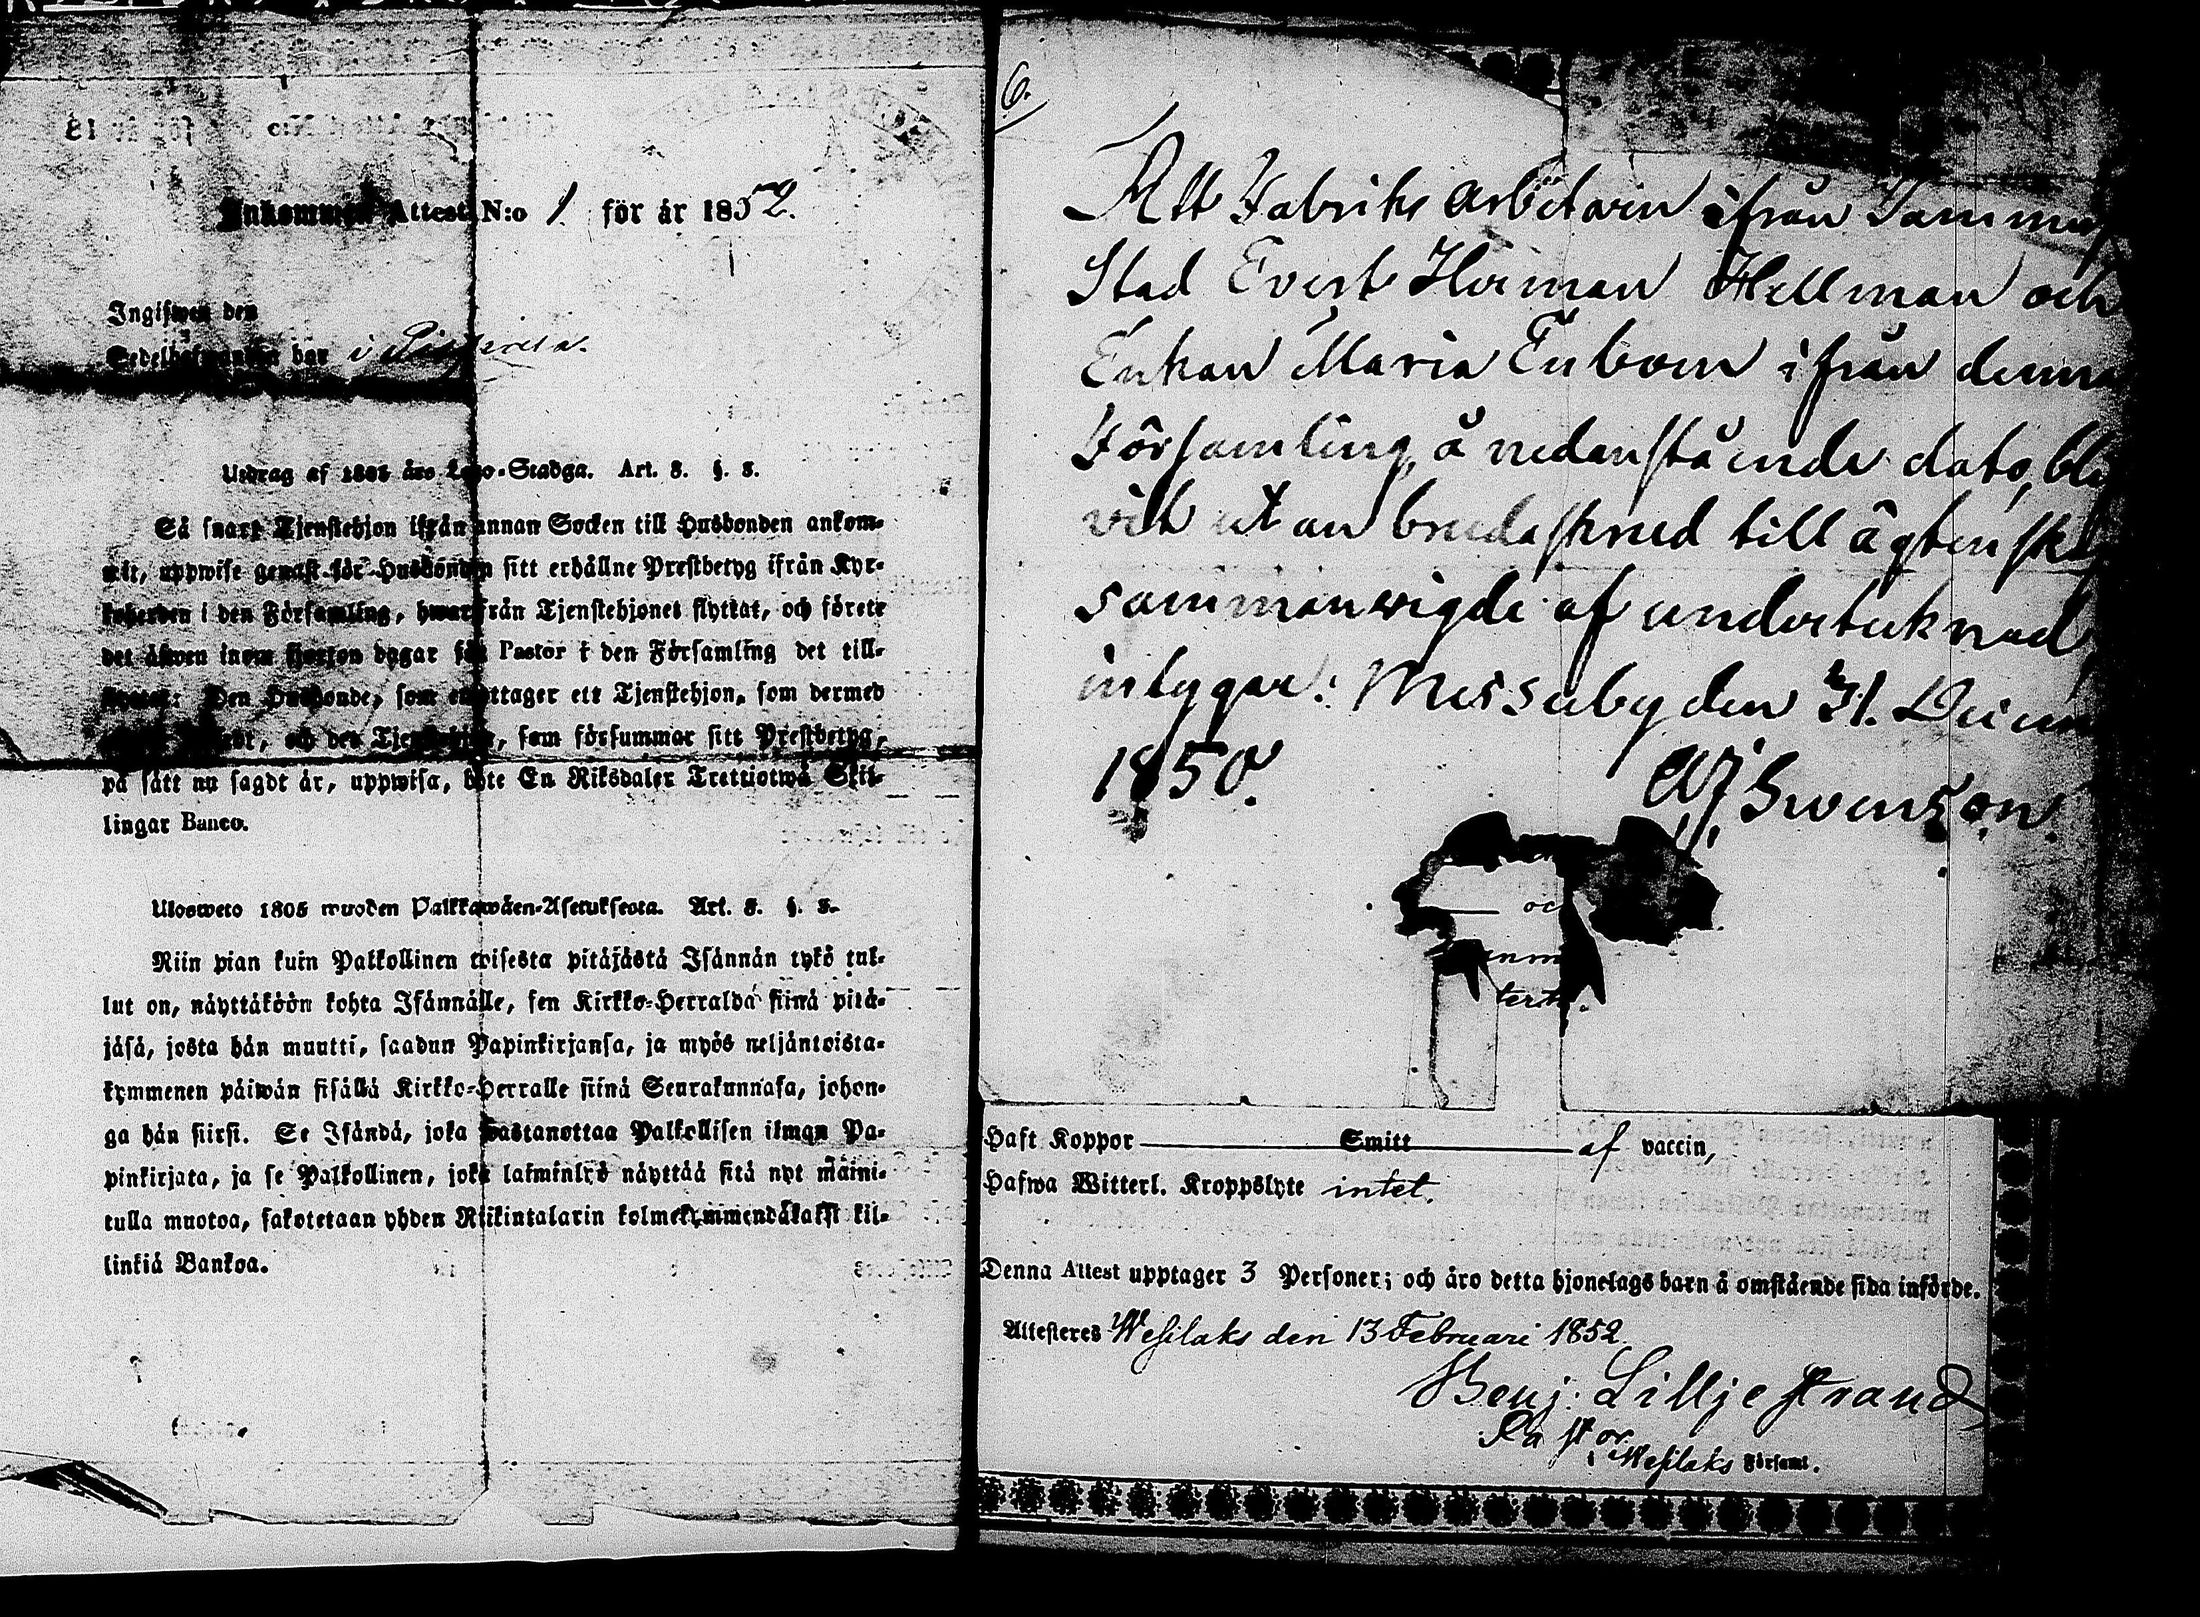 Inkommen Attest N:o 1 för år 1852.
Ingifwen den
Sedelhafwanden bor i
Utdrag af 1805 års Lego-Stadga. Art. 3. §. 3.
Så snart Tjenstehjon ifrån annan Socken till Husbonden ankom-
mit, uppwise genast för Husbonden sitt erhållne Prestbetyg ifrån Kyr-
koherden i den Församling, hwarifrån Tjenstehjonet flyttat, och förete
det äfwen inom fjorton dagar för Pastor i den Församling det till-
flyttat: Den Husbonde, som emottager ett Tjenstehjon, som dermed
och det Tjenstehjon, som försummar sitt Prestbetyg,
på sätt nu sagdt är, uppwisa, böte En Riksdaler Trettiotwå Skil-
lingar Banco.
Ulosweto 1805 wuoden Palkkawäen-Asetuksesta. Art. 3. §. 3.
Niin pian kuin Palkollinen toisesta pitäjästä Isännän tykö tul-
lut on, näyttäköön kohta Isännälle, sen Kirkko-Herralda siinä pitä-
jäsä, josta hän muutti, saadun Papinkirjansa, ja myös neljäntoista-
kymmenen päiwän sisällä Kirkko-Herralle siinä Seurakunnasa, johon-
ga hän siirsi. Se Isändä, joka wastanottaa Palkollisen ilman Pa-
pinkirjata, ja se Palkollinen, joka laiminlyö näyttää sitä nyt maini-
tulla muotoa, sakotetaan yhden Riikintalarin kolmekymmendäkaksi kil-
linkiä Bankoa.
6.
Att Fabriks arbetaren ifrån Tammerf
Stad Evert Herman Hellman och
Enkan Maria Enbom ifrån denna
Församling, å nedanstående dato, bli
vit utan brudaskrud till ägtensk
sammanvigde af undertecknad,
intygar: Messuby den 31. Decem
1850. Swenson.
oc
Haft Koppor Smitt af vaccin,
Hafwa Witterl. Kroppslyte intet.
Denna Attest upptager 3 Personer; och äro detta hjonelags barn å omstående sida införde.
Attesteres Wesilaks den 13 Februari 1852.
Benj. Lilljestrand
Pastor
i Wesilaks Församl.